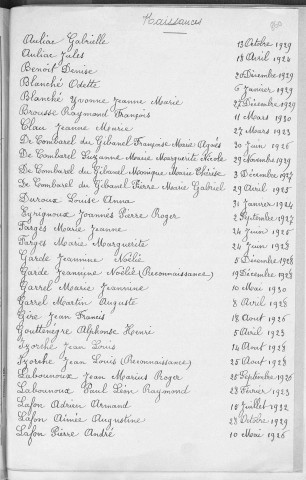 Naissances
Auliac Gabrielle 13 Octobre 1929
Auliac Jules 18 Avril 1924
Benoît Denise 20 Décembre 1929
Blanché Odette 6 Janvier 1929
Blanché Yvonne Jeanne Marie 27 Décembre 1929
Brousse Raymond François 11 Mars 1930
Clau Jeanne 27 Mars 1923
De Combarel du Gibanel Françoise Marie Agnès 30 Juin 1926
De Combarel du Gibanel Suzanne Marie Marguerite Nicole 29 Novembre 1929
De Combarel du Gibanel Monique Marie Thérèse 3 Décembre 1927
De Combarel du Gibanel Pierre Marie Gabriel 29 Avril 1925
Duroux Louise Anna 31 Janvier 1924
Eyrignoux Joannès Pierre Roger 2 Septembre 1927
Fargès Marie Jeanne 24 Juin 1925
Farges Marie Marguerite 24 Juin 1928
Garde Jeannine Noélie 5 Décembre 1928
Garde Jeannine Noélie (Reconnaissance) 19 Décembre 1928
Garrel Marie Jeannine 10 Mai 1930
Garrel Martin Auguste 8 Avril 1928
Gire Jean Francis 18 Août 1926
Gouttenègre Alphonse Henri 5 Avril 1923
Jean Louis 14 Août 1928
Jean Louis (Reconnaissance) 25 Août 1928
Labournoux Jean Marius Roger 25 Septembre 1926
Labournoux Paul Léon Raymond 28 Février 1923
Lafon Adrien Armand 10 Juillet 1932
Lafon Aimée Augustine 28 Octobre 1929
Lafon Pierre André 10 Mai 1926